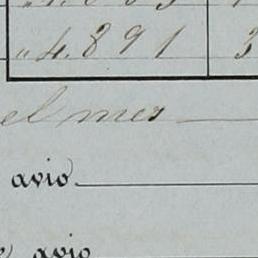 "4.891 3
el mes
avio
avio